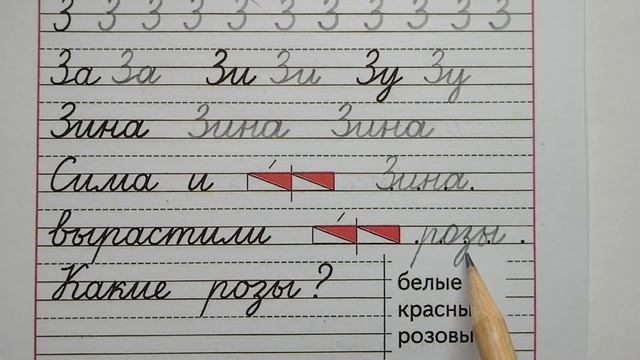 З З З З З З З З З З З
За За Зи Зи Зу Зу
Зина Зина Зина
Сима и Зина.
вырастили розы.
Какие розы?
белые